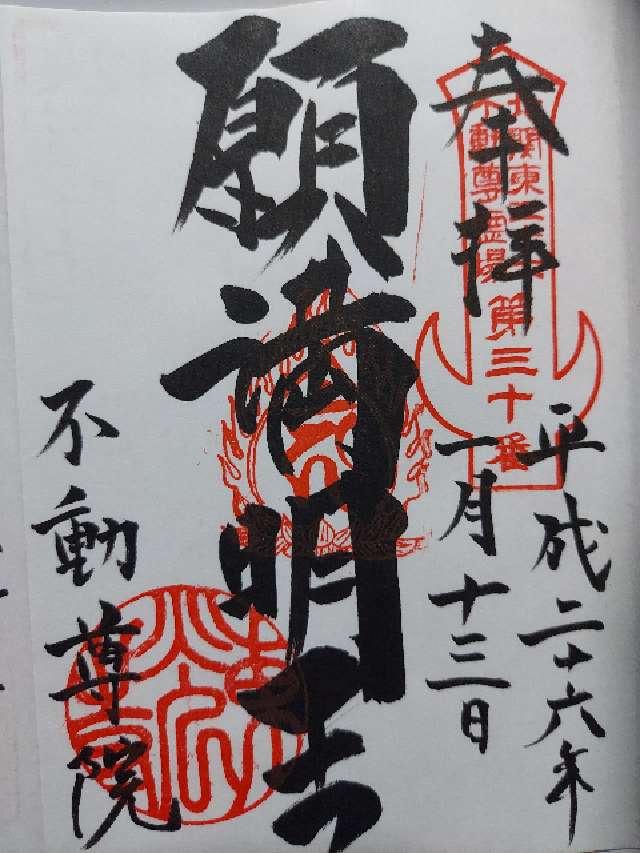 奉拝
不動尊霊場
第三十番
平成二十六年
一月十三日
願満明王
不動尊院